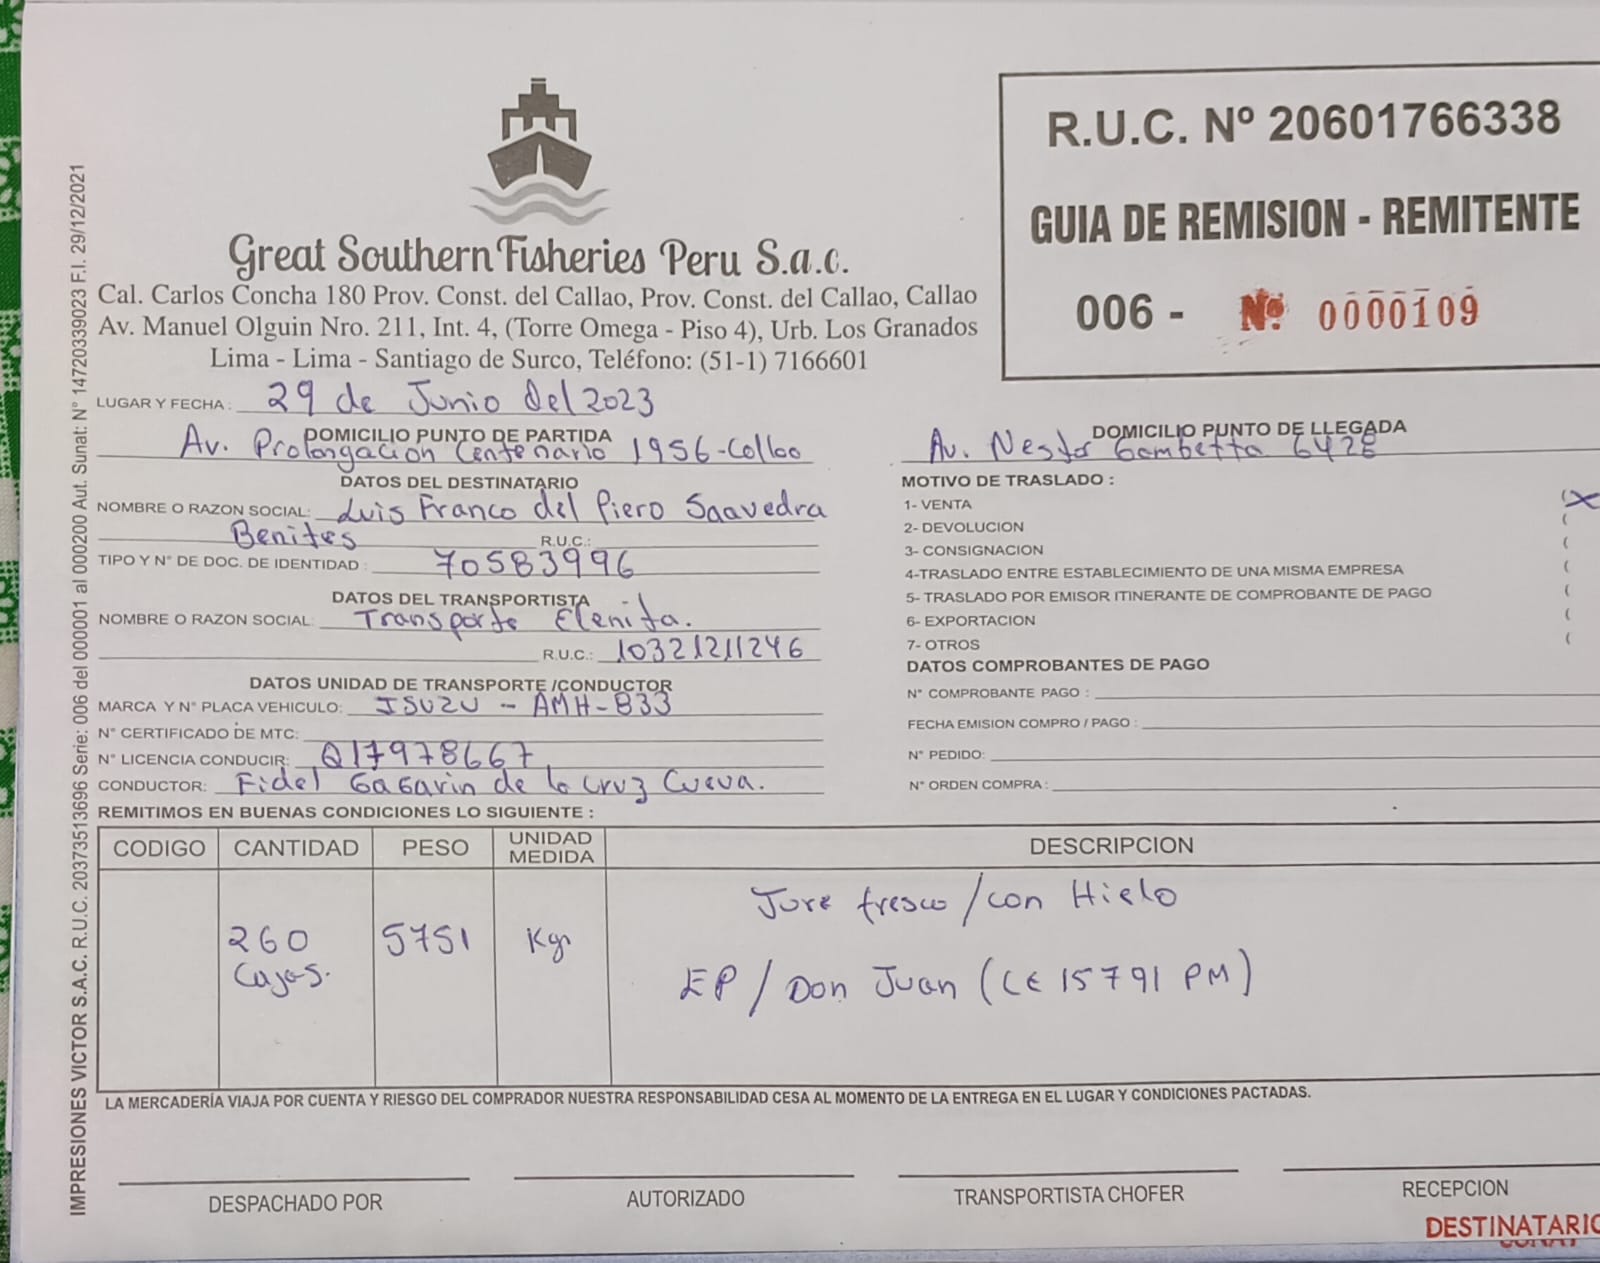 R.U.C. Nº 20601766338
GUIA DE REMISION - REMITENTE
006 - Nº 0000109
Great Southern Fisheries Peru S.a.c.
Cal. Carlos Concha 180 Prov. Const. del Callao, Prov. Const. del Callao, Callao
Av. Manuel Olguin Nro. 211, Int. 4, (Torre Omega - Piso 4), Urb. Los Granados
Lima - Lima - Santiago de Surco, Teléfono: (51-1) 7166601
LUGAR Y FECHA : 29 de Junio del 2023
DOMICILIO PUNTO DE PARTIDA
Av. Prolongacion Centenario 1956-Callao
DOMICILIO PUNTO DE LLEGADA
Av. Nestor Gambetta 6428
DATOS DEL DESTINATARIO
NOMBRE O RAZON SOCIAL: Luis Franco del Piero Saavedra
Benites R.U.C.:
TIPO Y N° DE DOC. DE IDENTIDAD : 70583996
DATOS DEL TRANSPORTISTA
NOMBRE O RAZON SOCIAL: Transporte Elenita.
R.U.C.: 10321211246
DATOS UNIDAD DE TRANSPORTE /CONDUCTOR
MARCA Y N° PLACA VEHICULO: ISUZU - AMH-833
N° CERTIFICADO DE MTC:
N° LICENCIA CONDUCIR: Q17978667
CONDUCTOR: Fidel Gagarin de la Cruz Cueva.
MOTIVO DE TRASLADO :
1- VENTA (X
2- DEVOLUCION (
3- CONSIGNACION (
4-TRASLADO ENTRE ESTABLECIMIENTO DE UNA MISMA EMPRESA (
5- TRASLADO POR EMISOR ITINERANTE DE COMPROBANTE DE PAGO (
6- EXPORTACION (
7- OTROS (
DATOS COMPROBANTES DE PAGO
N° COMPROBANTE PAGO :
FECHA EMISION COMPRO / PAGO :
N° PEDIDO:
N° ORDEN COMPRA :
REMITIMOS EN BUENAS CONDICIONES LO SIGUIENTE :
CODIGO CANTIDAD PESO UNIDAD MEDIDA DESCRIPCION
Jure fresco / con Hielo
260 5751 Kgs
Cajas. EP / Don Juan (CE 15791 PM)
LA MERCADERÍA VIAJA POR CUENTA Y RIESGO DEL COMPRADOR NUESTRA RESPONSABILIDAD CESA AL MOMENTO DE LA ENTREGA EN EL LUGAR Y CONDICIONES PACTADAS.
DESPACHADO POR AUTORIZADO TRANSPORTISTA CHOFER RECEPCION
DESTINATARIO
IMPRESIONES VICTOR S.A.C. R.U.C. 20373513696 Serie: 006 del 000001 al 000200 Aut. Sunat: N° 14720339023 F.I. 29/12/2021